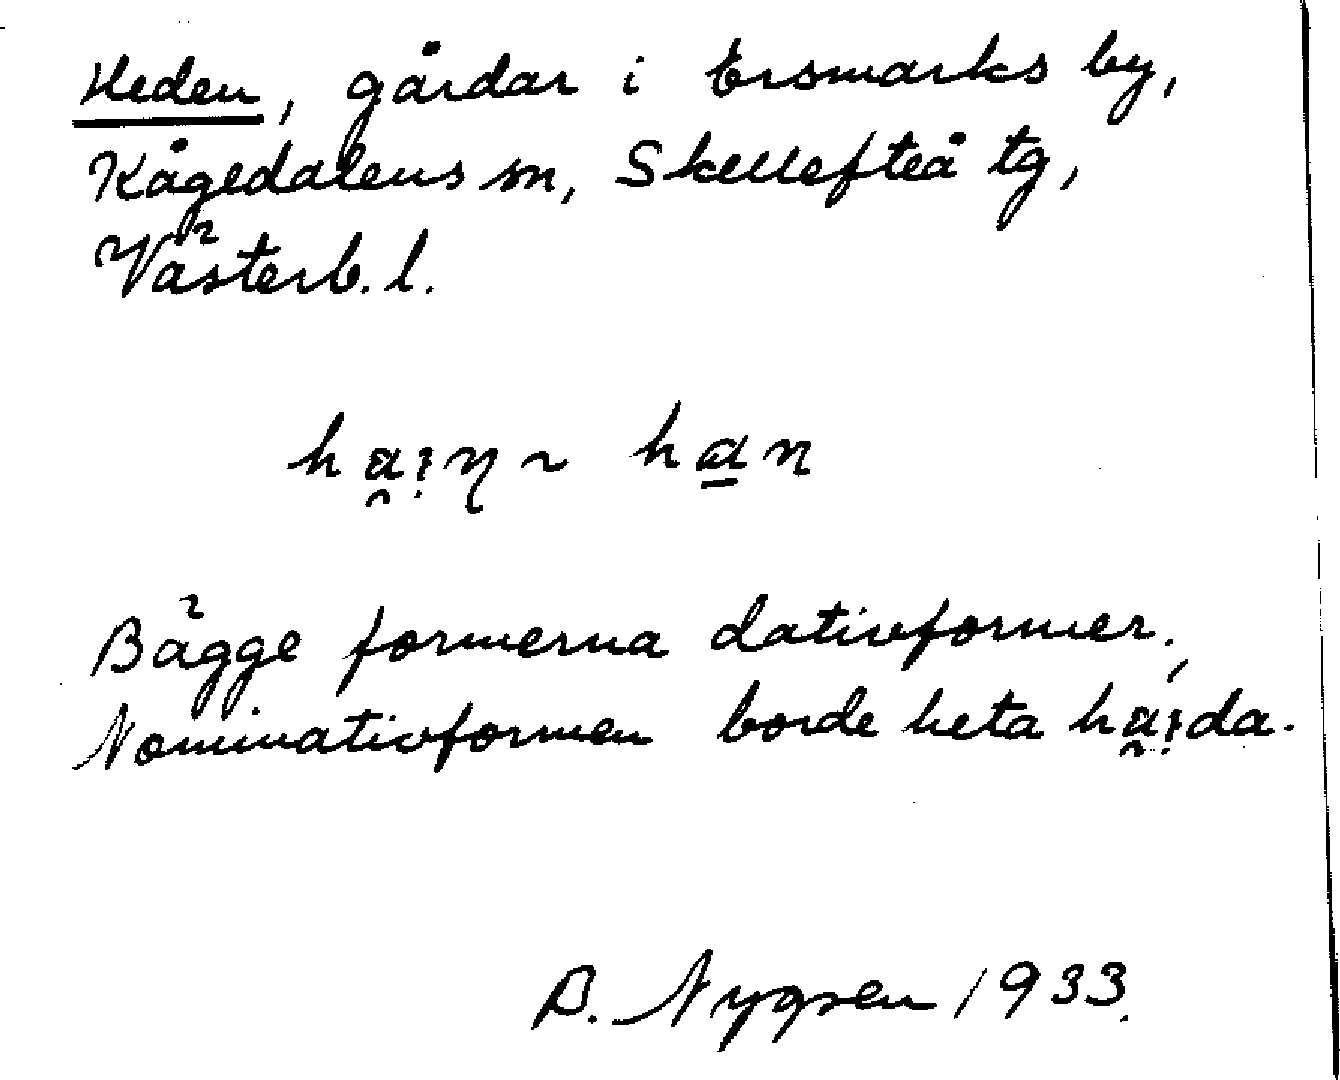 Heden, gårdar i Ersmarks by,
Kågedalens sn, Skellefteå tg,
Västerb. l.
Bägge formerna dativformer.
Nominativformen borde heta
B. Nygren 1933.